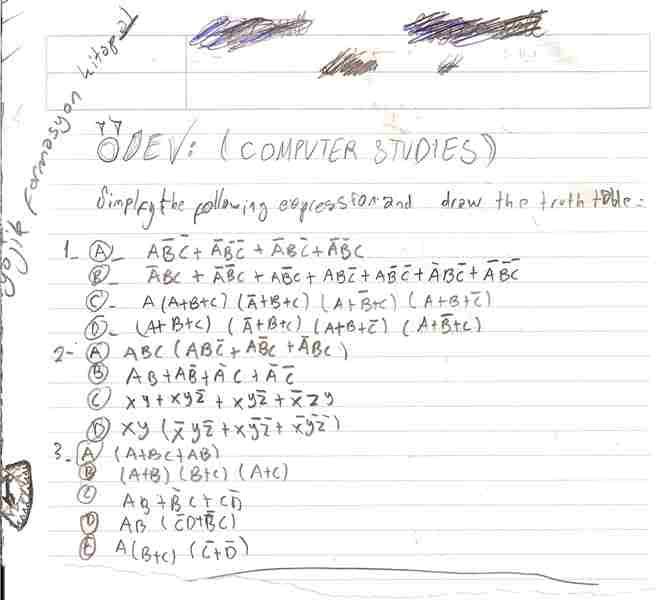 ÖDEV: (COMPUTER STUDIES)
Simplfy the following expression and draw the truth table:
1- (A)- AB̅C̅ + A̅B̅C̅ + A̅BC̅ + A̅B̅C
(B)- A̅BC + A̅B̅C + AB̅C + ABC̅ + AB̅C̅ + A̅BC̅ + A̅B̅C̅
(C)- A(A+B+C) (A̅+B+C) (A+B̅+C) (A+B+C̅)
(D)- (A+B+C) (A̅+B+C) (A+B+C̅) (A+B̅+C)
2- (A) ABC (ABC̅ + AB̅C + A̅BC)
(B) AB + AB̅ + A̅C + A̅C̅
(C) XY + XYZ̅ + XYZ̅ + X̅ZY
(D) XY (X̅YZ̅ + XY̅Z̅ + X̅Y̅Z̅)
3- (A) (A+BC+AB)
(B) (A+B) (B+C) (A+C)
(C) AB + B̅C + CD̅
(D) AB (C̅D+B̅C)
(E) A(B+C) (C̅+D̅)
Formasyon kitapol